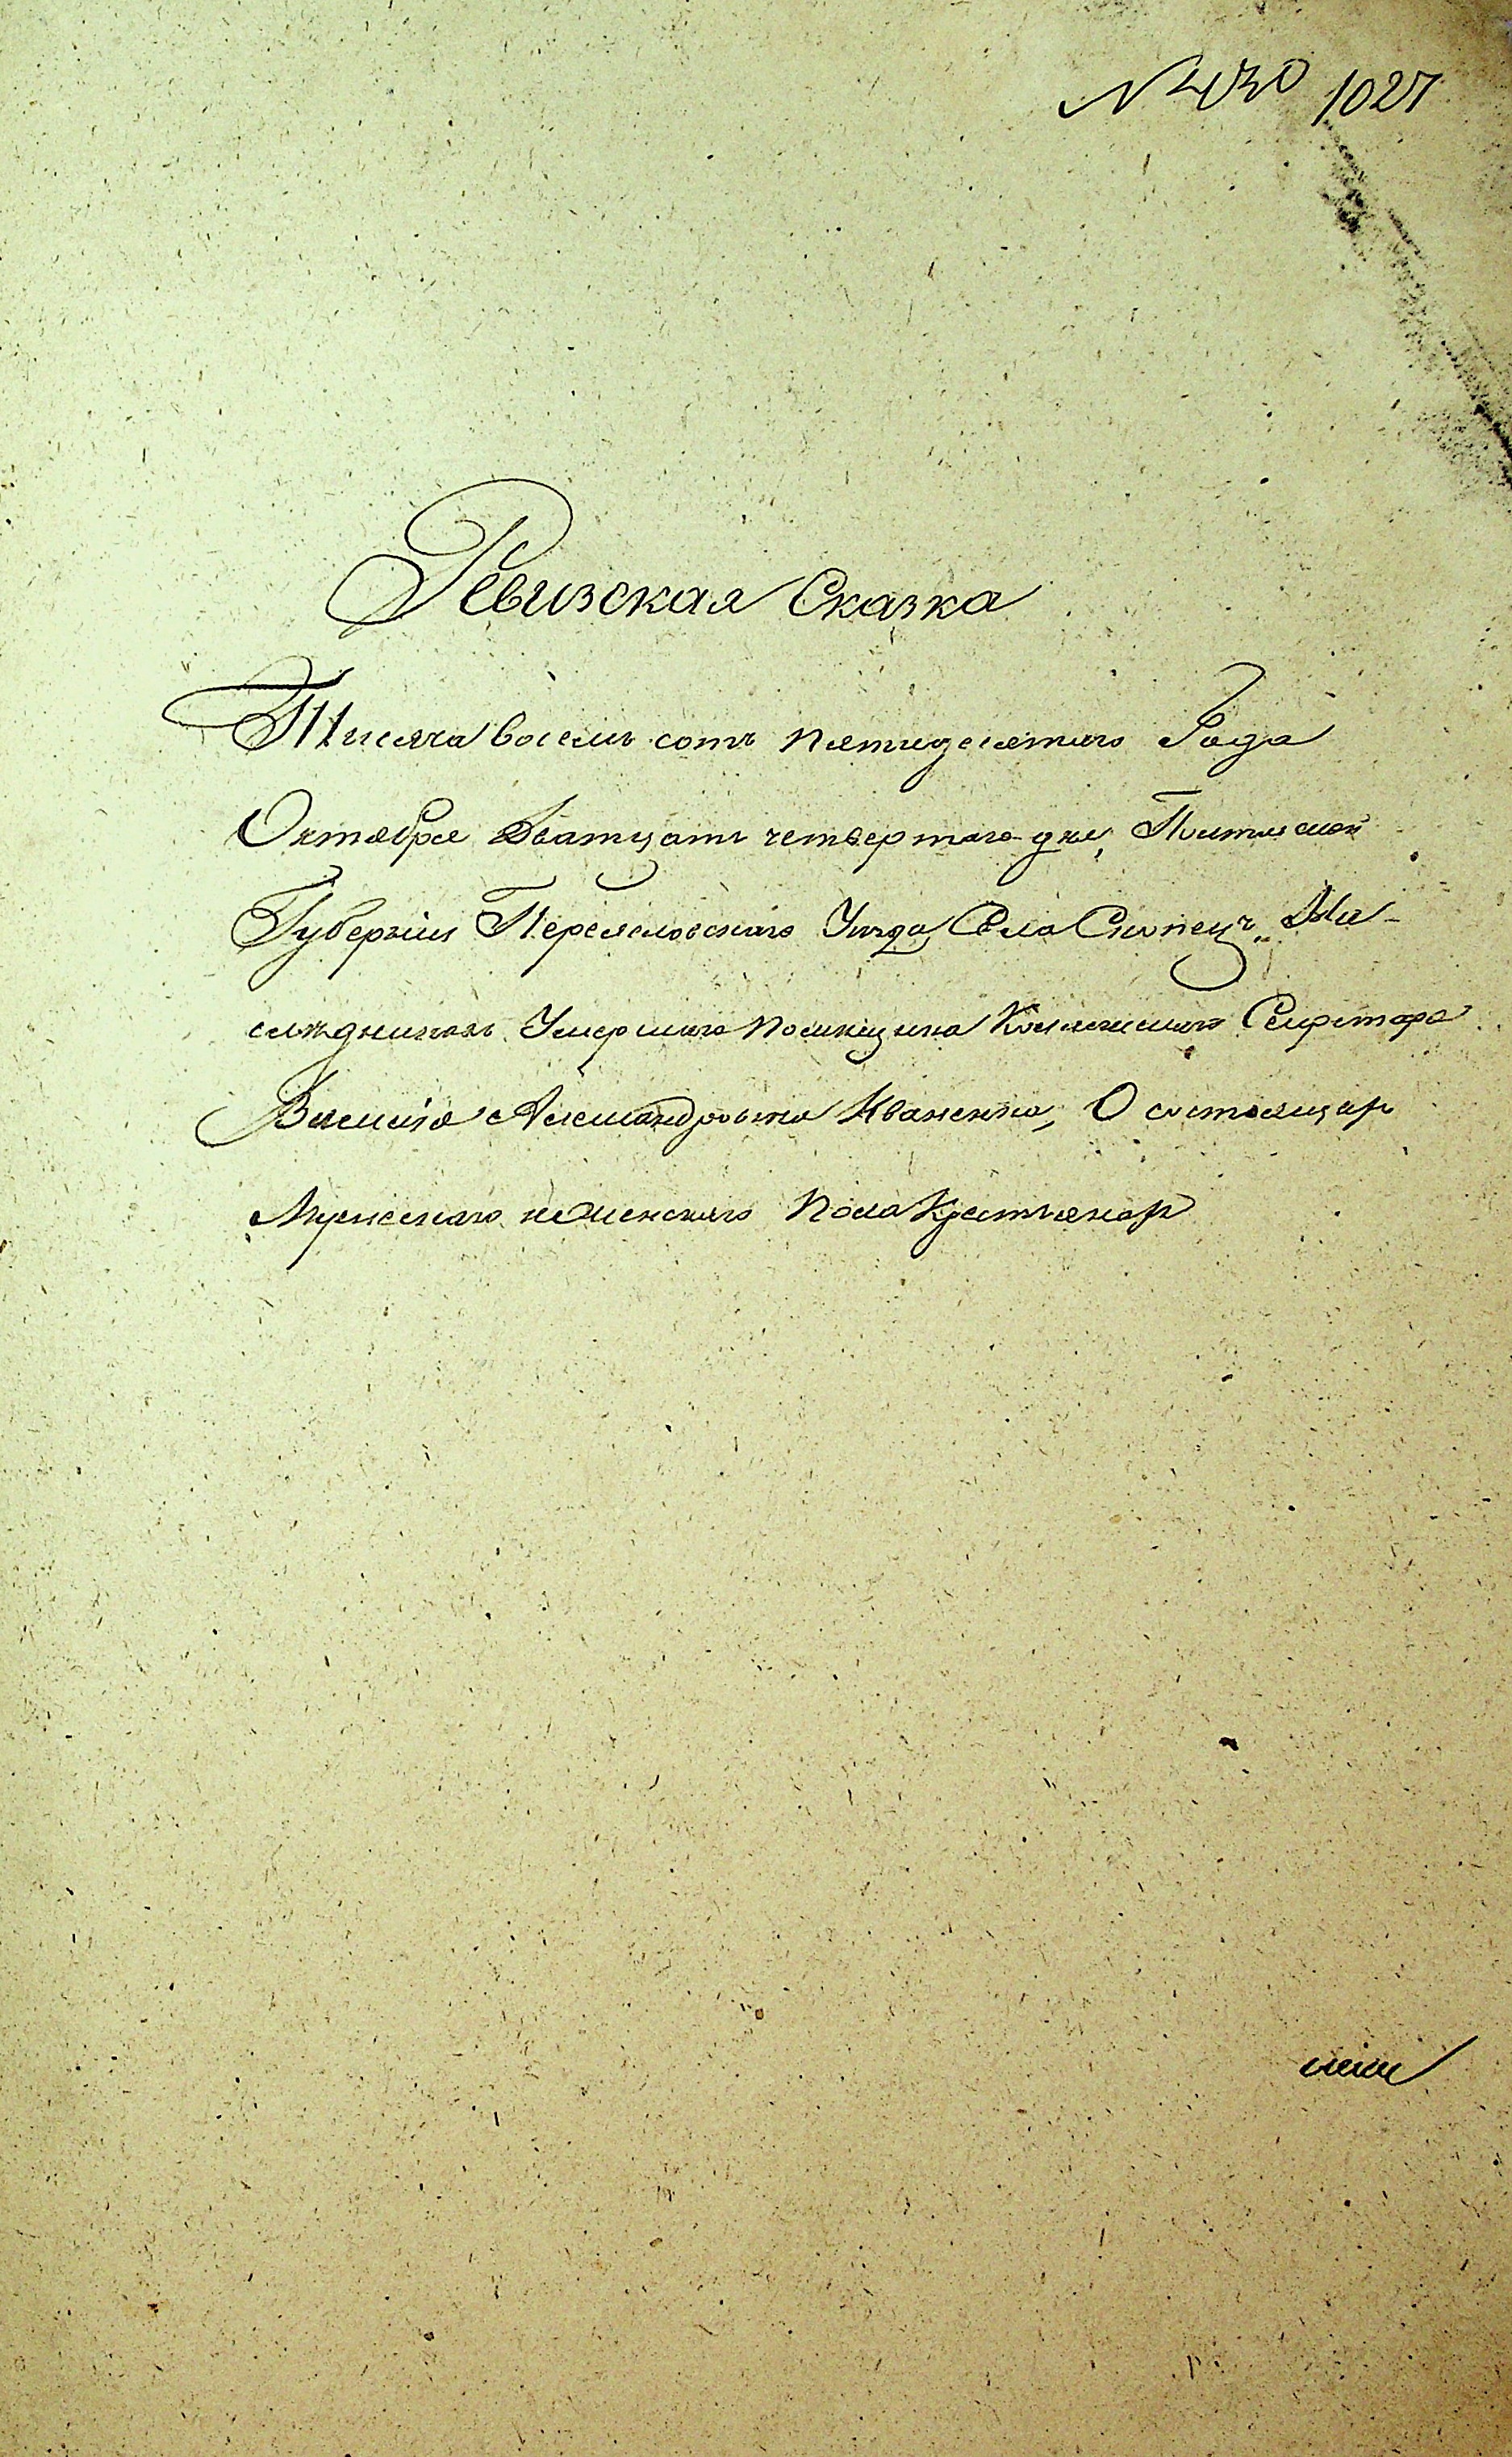 № 430 1027
Ревизская Сказка
Тысяча восемь сотъ пятидесятаго Года
Октября Дватцать четвертаго дня, Полтавской
Губерніи Переяславскаго Уѣзда, Села Скопецъ, На-
слѣдниковъ Умершаго помѣщика Коллежскаго Секретаря
Василія Александровича Иваненка, О состоящихъ
Мужескаго и женскаго пола Крестьянахъ